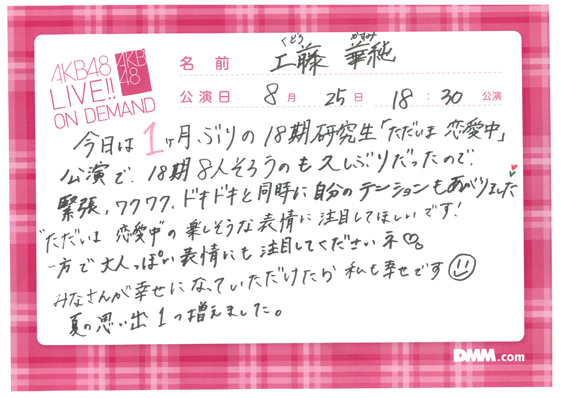 AKB48
LIVE!!
ON DEMAND
AKB
48
名前 くどう かすみ
工藤 華純
公演日 8月 25日 18:30 公演
今日は1ヶ月ぶりの18期研究生「ただいま 恋愛中」
公演で、18期8人そろうのも久しぶりだったので、
緊張,ワクワク,ドキドキと同時に自分のテンションもあがりました
"ただいま 恋愛中"の楽しそうな表情に注目してほしいです!
一方で大人っぽい表情にも注目してくださいネ♡。
みなさんが幸せになっていただけたら 私も幸せです
夏の思い出1つ増えました。
DMM.com